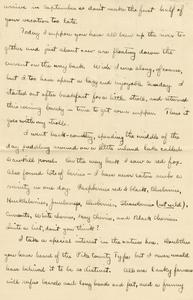 arrive in September so don't make the first half of
your vacation too late.
Today I suppose you have all been up the river to-
gether and just about now are floating down the
current on the way back. Wish I was along, of course,
but I too have spent a lazy and enjoyable Sunday. I
started out after breakfast for a little stroll, and returned
this evening barely in time to get some supper. There it
you with my stroll.
I went back-country, spending the middle of the
day puddling around on a little inland lake called
beautiful pond. On the way back I saw a red fox.
Also found lots of berries - I have never eaten such a
variety in one day. Raspberries red & black, blueberries,
Huckleberries, juneberries, Strawberries (but wild),
Currants, White cherries, May Cherries, and Black Cherries
Quite a lot, don't you think?
I take a special interest in the natives here. Doubtless
you have heard of the Pike County Type, but I never would
have believed it to be so distinct. All are lanky farmer
with rufus beards and long hands and feet, and a funny